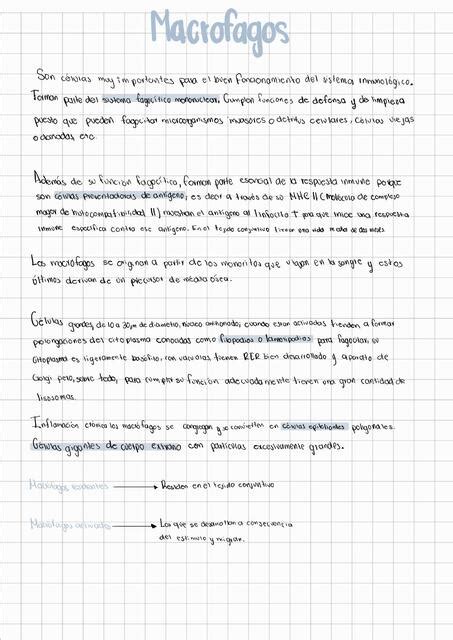 Macrofagos
Son células muy importantes para el buen funcionamiento del sistema inmunológico.
Forman parte del sistema fagocítico mononuclear. Cumplen funciones de defensa y de limpieza
puesto que pueden fagocitar microorganismos invasores o detritus celulares, células viejas
o dañadas, etc.
Además de su función fagocítica, forman parte esencial de la respuesta inmune porque
son células presentadoras de antígeno; es decir a través de su MHC II (molécula de complejo
mayor de histocompatibilidad II) muestran el antígeno al linfocito T para que inicie una respuesta
inmune específica contra ese antígeno. En el tejido conjuntivo tienen una vida media de dos meses
Los macrófagos se originan a partir de los monocitos que viajan en la sangre y estos
últimos derivan de un precursor de médula ósea.
Células grandes, de 10 a 30 μm de diámetro, núcleo arriñonado, cuando están activadas tienden a formar
prolongaciones del citoplasma conocidas como filopodios o lamelipodios para fagocitar, su
citoplasma es ligeramente basófilo, con vacuolas tienen RER bien desarrollado y aparato de
Golgi pero, sobre todo, para cumplir su función adecuadamente tienen una gran cantidad de
lisosomas.
Inflamación crónica los macrófagos se congregan y se convierten en células epitelioides poligonales.
Células gigantes de cuerpo extraño con partículas excesivamente grandes.
Macrófagos residentes → Residen en el tejido conjuntivo
Macrófagos activados → Los que se desarrollan a consecuencia
del estímulo y migran.